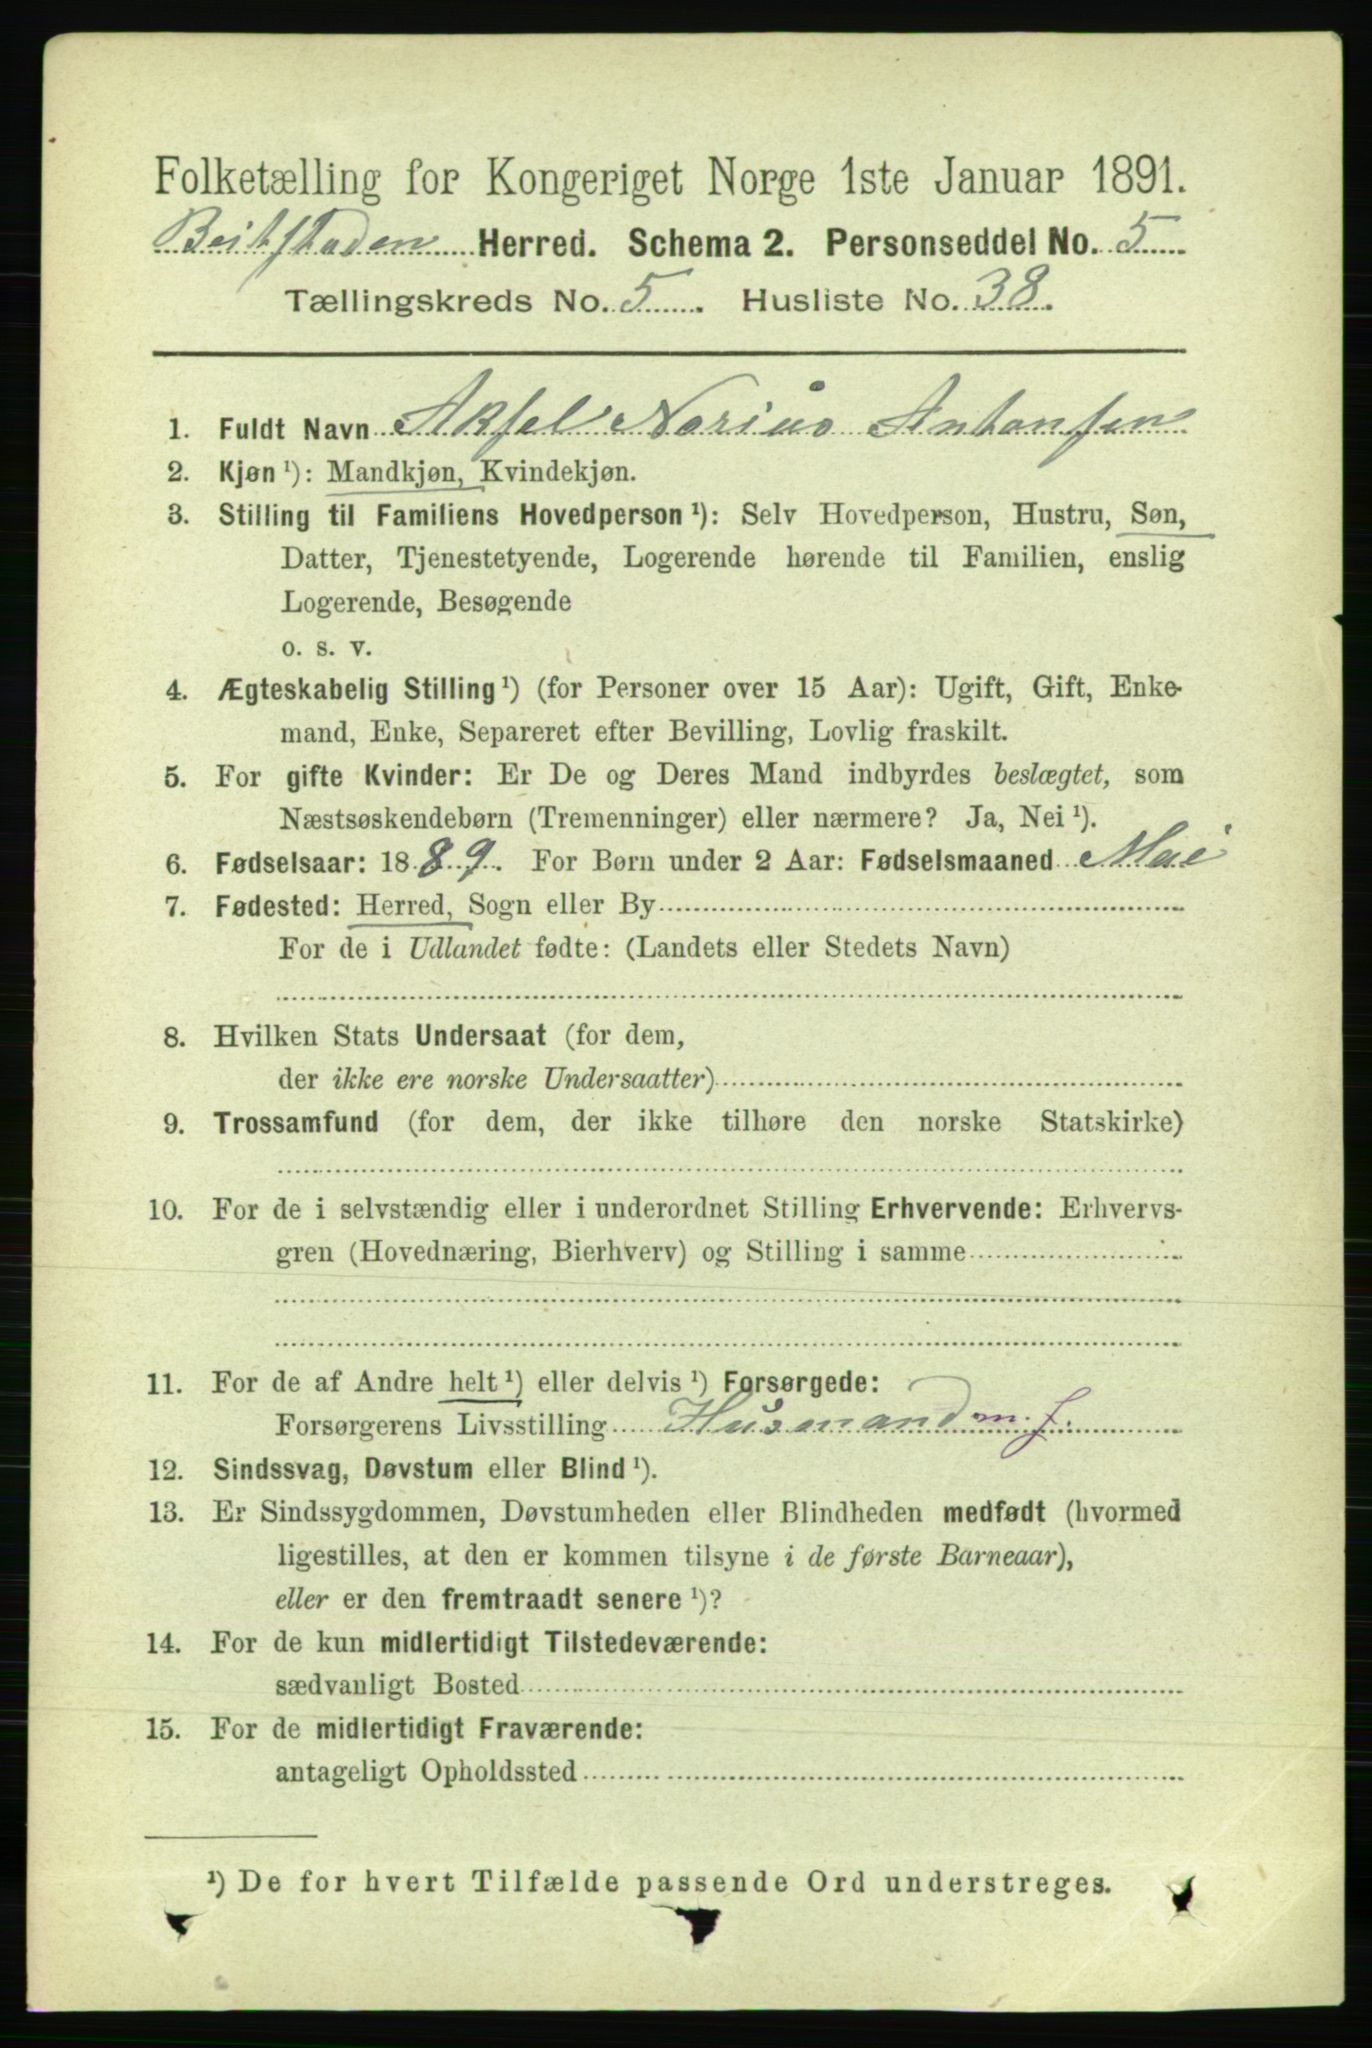 Folketælling for Kongeriget Norge 1ste Januar 1891.
Beitstaden Herred. Schema 2. Personseddel No. 5
Tællingskreds No. 5. Husliste No. 38.
1. Fuldt Navn Aksel Norius Antonsen
2. Kjøn ¹): Mandkjøn, Kvindekjøn.
3. Stilling til Familiens Hovedperson ¹): Selv Hovedperson, Hustru, Søn,
Datter, Tjenestetyende, Logerende hørende til Familien, enslig
Logerende, Besøgende
o. s. v.
4. Ægteskabelig Stilling ¹) (for Personer over 15 Aar): Ugift, Gift, Enke-
mand, Enke, Separeret efter Bevilling, Lovlig fraskilt.
5. For gifte Kvinder: Er De og Deres Mand indbyrdes beslægtet, som
Næstsøskendebørn (Tremenninger) eller nærmere? Ja, Nei ¹).
6. Fødselsaar: 1889. For Børn under 2 Aar: Fødselsmaaned Mai
7. Fødested: Herred, Sogn eller By
For de i Udlandet fødte: (Landets eller Stedets Navn)
8. Hvilken Stats Undersaat (for dem,
der ikke ere norske Undersaatter)
9. Trossamfund (for dem, der ikke tilhøre den norske Statskirke)
10. For de i selvstændig eller i underordnet Stilling Erhvervende: Erhvervs-
gren (Hovednæring, Bierhverv) og Stilling i samme
11. For de af Andre helt ¹) eller delvis ¹) Forsørgede:
Forsørgerens Livsstilling Husmand m. J.
12. Sindssvag, Døvstum eller Blind ¹).
13. Er Sindssygdommen, Døvstumheden eller Blindheden medfødt (hvormed
ligestilles, at den er kommen tilsyne i de første Barneaar),
eller er den fremtraadt senere ¹)?
14. For de kun midlertidigt Tilstedeværende:
sædvanligt Bosted
15. For de midlertidigt Fraværende:
antageligt Opholdssted
¹) De for hvert Tilfælde passende Ord understreges.